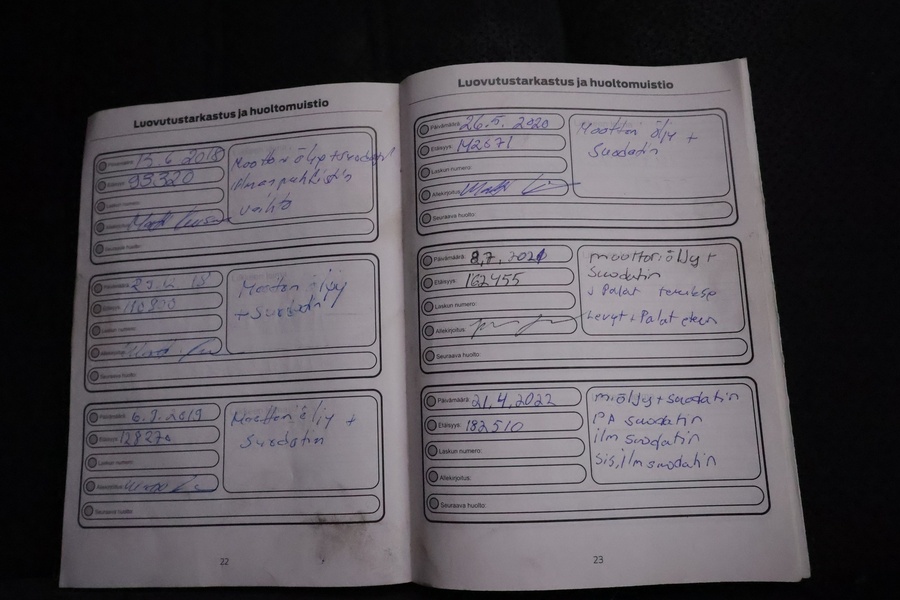 Luovutustarkastus ja huoltomuistio
Päivämäärä: 15.6 2018
Etäisyys: 93320
Laskun numero:
Allekirjoitus:
Seuraava huolto:
Moottori öljy + suodatin
ilmanpuhdistin
vaihto
Päivämäärä:
Etäisyys:
Laskun numero:
Allekirjoitus:
Seuraava huolto:
Moottori öljy
+ Suodatin
Päivämäärä: 6.9.2019
Etäisyys: 128270
Laskun numero:
Allekirjoitus:
Seuraava huolto:
Moottori öljy +
Suodatin
22
Luovutustarkastus ja huoltomuistio
Päivämäärä: 26.5. 2020
Etäisyys: 142671
Laskun numero:
Allekirjoitus:
Seuraava huolto:
Moottori öljy +
Suodatin
Päivämäärä: 8,7, 2021
Etäisyys: 162455
Laskun numero:
Allekirjoitus:
Seuraava huolto:
moottoriöljy +
Suodatin
J Palat
Levyt + Palat eteen
Päivämäärä: 21,4,2022
Etäisyys: 182510
Laskun numero:
Allekirjoitus:
Seuraava huolto:
m.öljy + suodatin
PA suodatin
ilm suodatin
Sis,ilmsuodatin
23